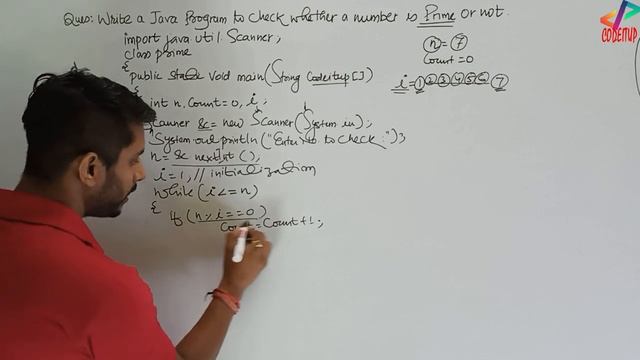 Ques: Write a Java Program to Check whether a number is Prime or not.
import java.util.Scanner;
class prime
{
public static void main(String Codeitup[])
{
int n, Count=0, i;
Scanner sc = new Scanner(System.in);
System.out.println("Enter no to check:");
n= sc.nextInt();
i=1, // initialization
while(i<=n)
{
if(n%i==0)
Count=Count+1;
n=7
Count=0
i=1 2 3 4 5 6 7
CODEITUP